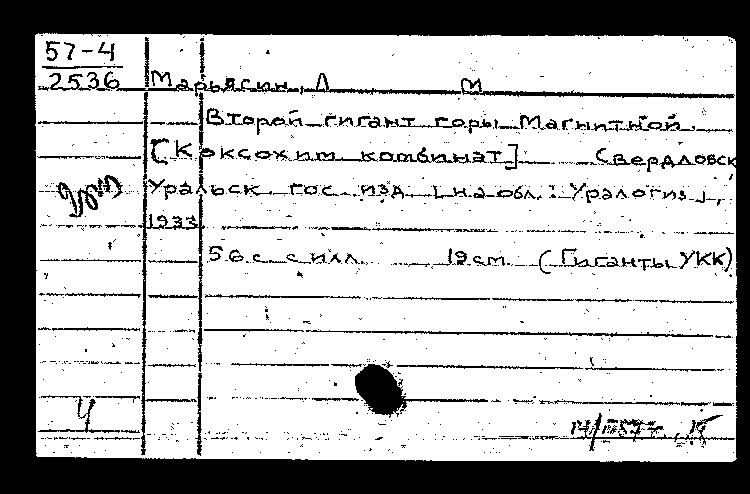 57-4
2536
Марьясин, Л М
Второй гигант горы Магнитной.
[Коксохим комбинат] Свердловск
Уральск. гос. изд. [на обл.: Уралогиз],
1933
56 с. с илл. 19 см. (Гиганты УКК)
4